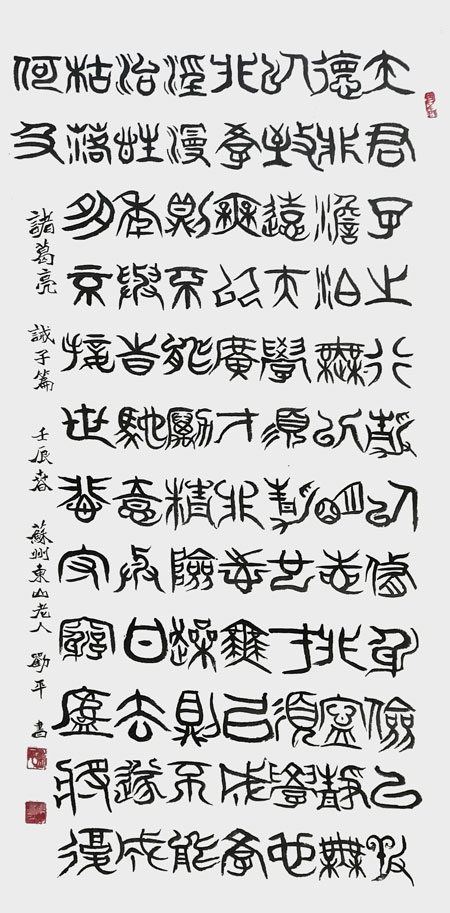 夫君子之行靜以修身儉以養
德非澹泊無以明志非寧靜無
以致遠夫學須靜也才須學也
非學無以廣才非志無以成學
淫漫則不能勵精險躁則不能
治性年與時馳意與日去遂成
枯落多不接世悲守窮廬將復
何及
諸葛亮 誡子篇 壬辰春 蘇州東山老人 平 書